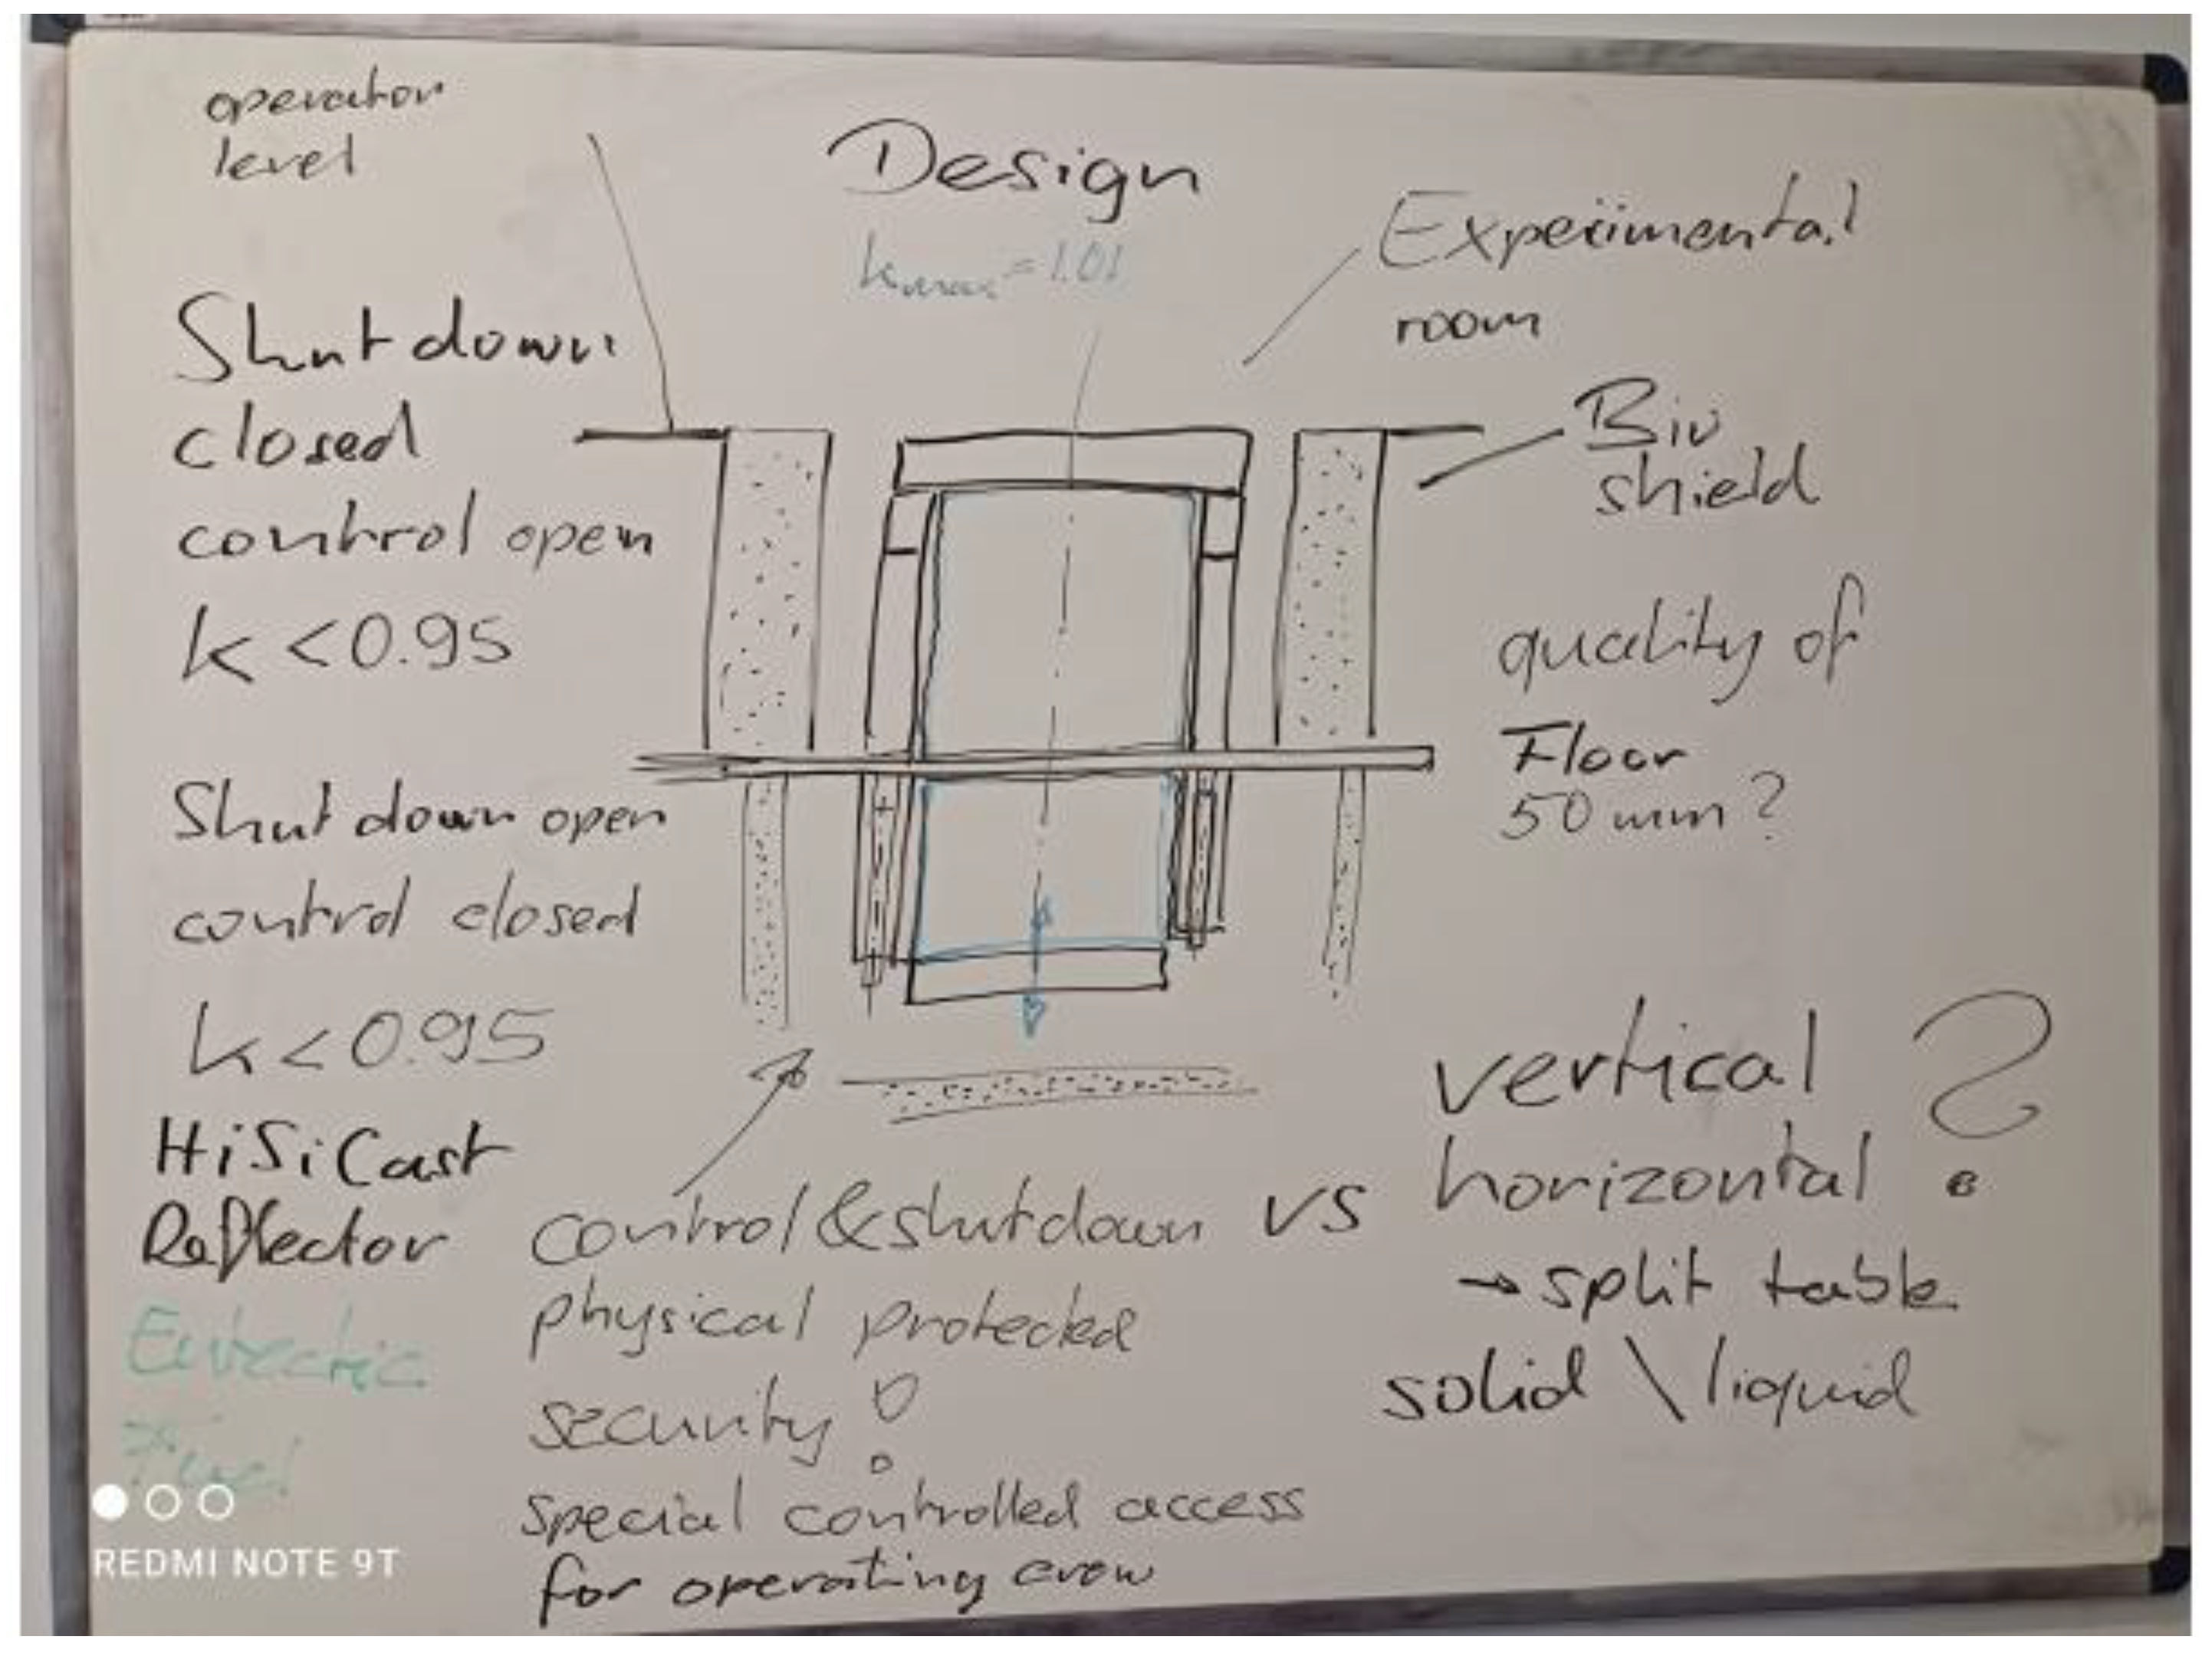 operator
level
Design
kmax = 1.01
Experimental
room
Shutdown
closed
control open
k < 0.95
Bio
shield
quality of
Floor
50 mm ?
Shutdown open
control closed
k < 0.95
HiSiCast
Reflector
Eutectic
Fuel
control & shutdown
physical protected
security !
special controlled access
for operating crew
vs
vertical
horizontal ?
→ split table
solid \ liquid
REDMI NOTE 9T